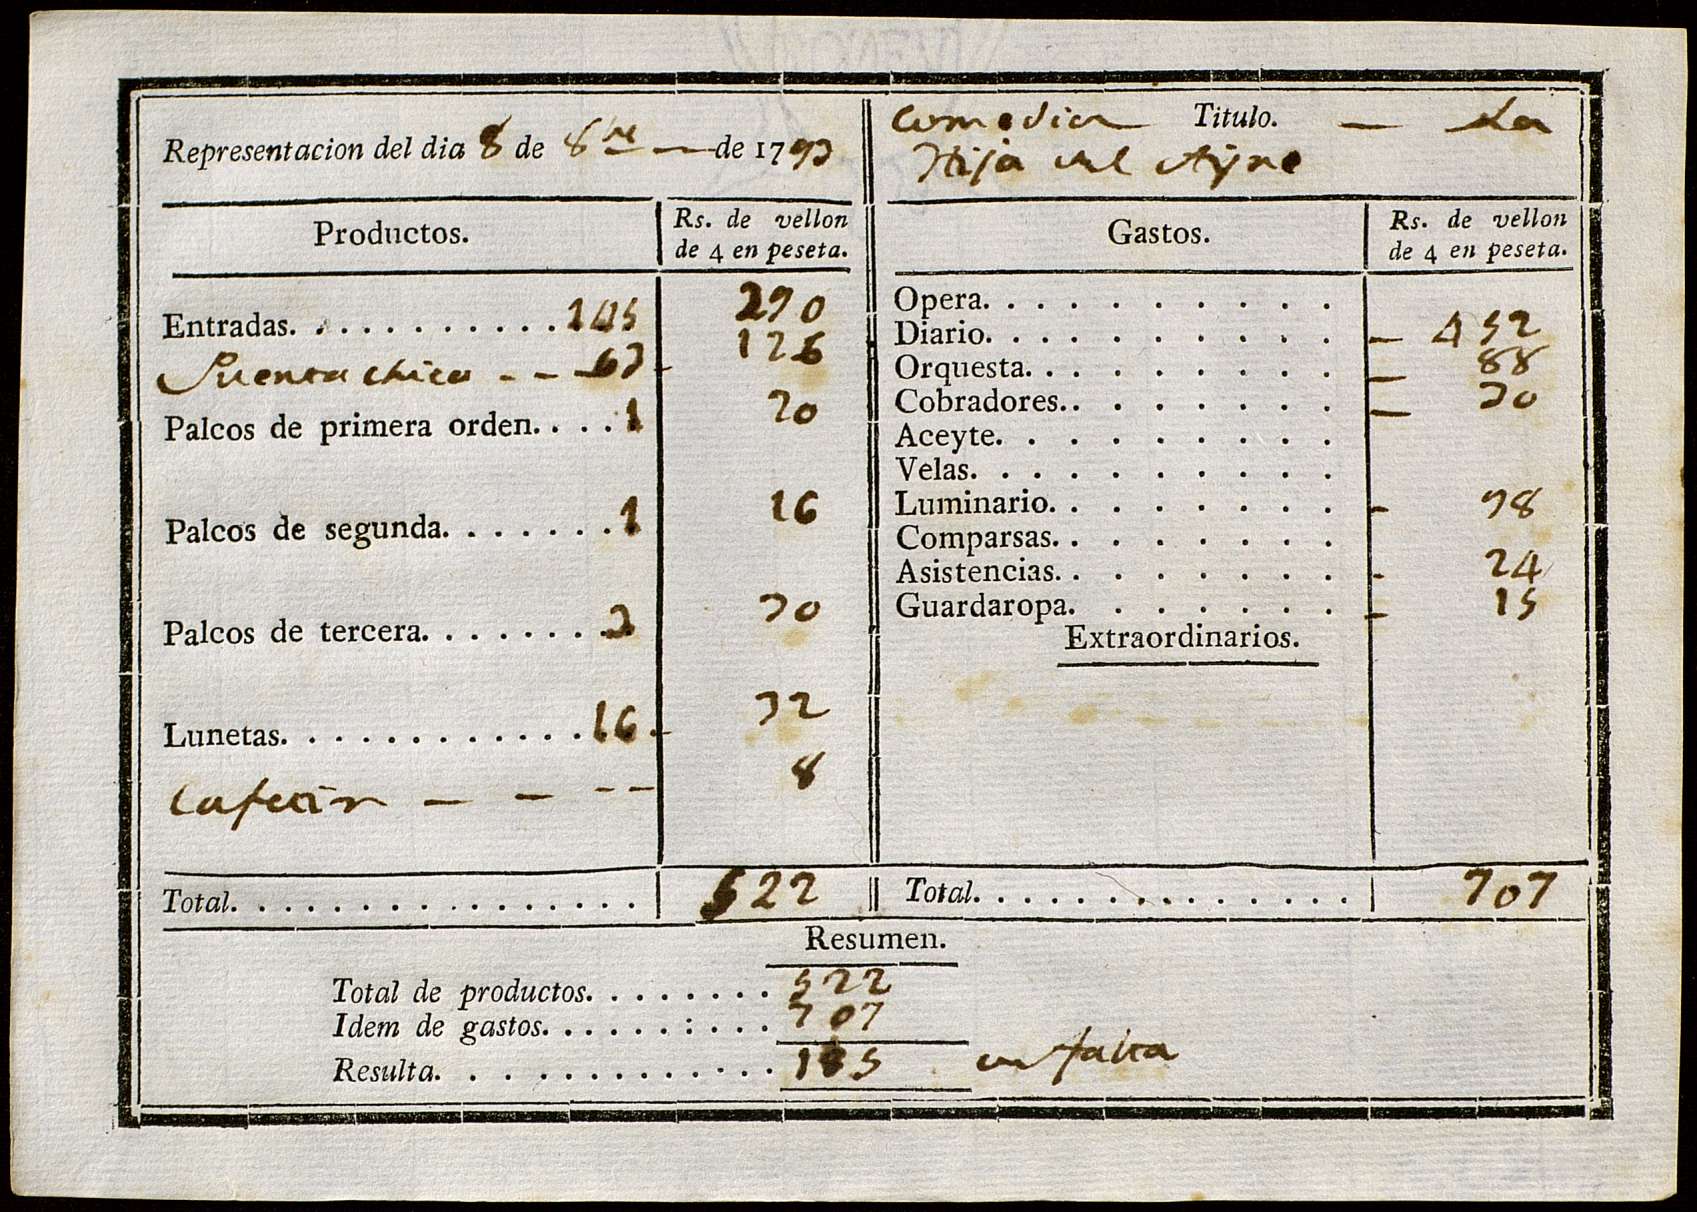 Representacion del dia 8 de 8bre de 1793
Productos. Rs. de vellon
de 4 en peseta.
Entradas. 145 290
Puerta chica - - 63 126
Palcos de primera orden. 1 20
Palcos de segunda. 1 16
Palcos de tercera. 2 30
Lunetas. 16 32
Cafetin - - - - 8
Total. 522
Comedia Titulo. — La
Hija del Ayre
Gastos. Rs. de vellon
de 4 en peseta.
Opera.
Diario. 452
Orquesta. 88
Cobradores. 30
Aceyte.
Velas.
Luminario. 98
Comparsas.
Asistencias. 24
Guardaropa. 15
Extraordinarios.
Total. 707
Resumen.
Total de productos. 522
Idem de gastos. 707
Resulta. 185 en falta